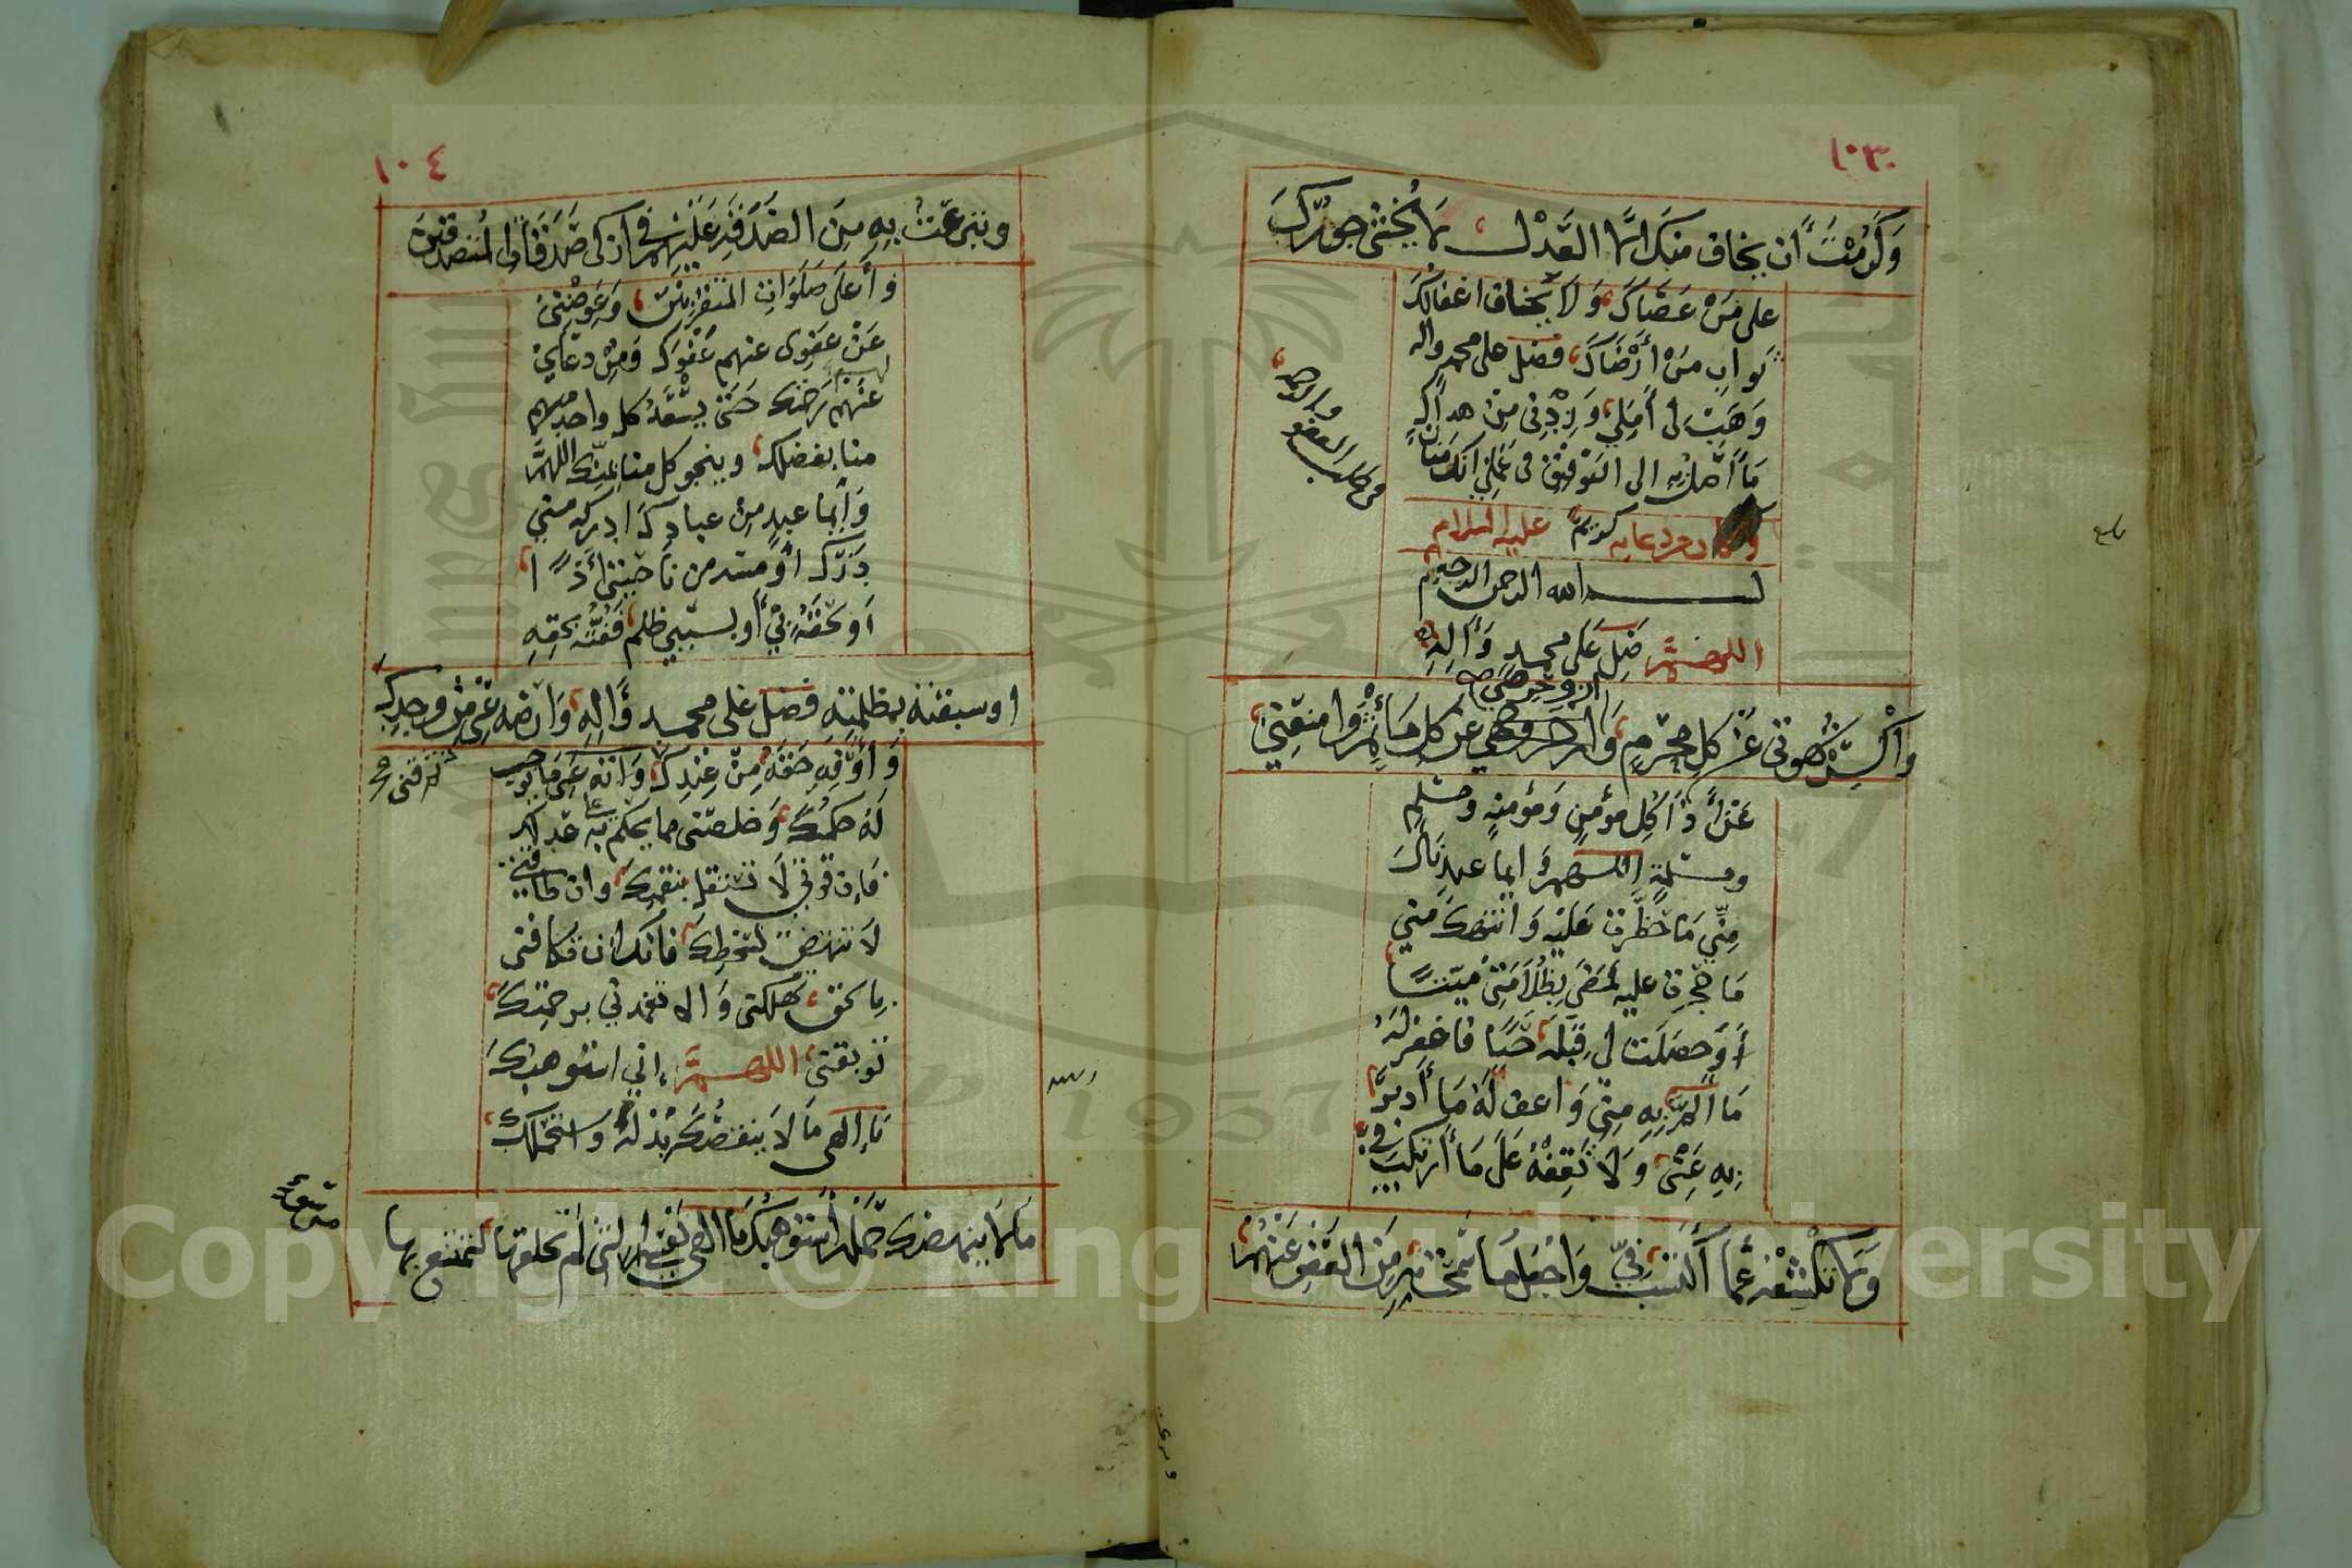 ١٠٣
وَكَرُمْتَ ان يخاف منك الا العَدْل لا يُخْشى جورك
على مَنْ عَصَاكَ وَلا يخاف اغفالك
ثواب مَنْ أَرْضَاكَ فصَلّ على محمد واله
وَهَبْ لى أَمَلي وَزِدْنى مِنْ هداك
مَا أصل به الى التوفيق فى عملي انك منان
من دعايه عليه السلام
فى طلب العفو والرحمة
بسم الله الرحمن الرحيم
اللهم صَلّ عَلى محمد وَآلِهِ
وَاكْسِرْ شهوتى عَنْ كل محرّم وازو حرصي عن كل مَأثم وامنعني
عَنْ أذَا كل مؤمن وَمؤمنة ومسلم
ومسلمة اللهم وَايما عبد نال
مِنّي مَا حظرت عليه وَانتهك مني
مَا حجرت عليه فمضى بِظُلامَتِى ميتا
أَوْ حصلت لي قبله حيا فاغفر له
مَا ألم به مِنّى وَاعف له مما أدبر
به عَنّى وَلا تَقِفْهُ عَلى مَا أرتكب فيّ
وَلا تكشفه عما أكتسب بي وَاجْعَل مَا سمحت به مِن العَفْوِ عَنْهُمْ
١٠٤
وتبرعت به مِنَ الصَدَقَةِ عَليْهم فى ازكى صَدقات المتصدقين
وَأَعلى صَلَوَات المتقربين وَعَوضْنِى
عَنْ عَفْوِى عنهم عَفْوك وَمِنْ دعاي
لهم رحمتك حَتى يسْعَد كل واحد
منا بفضلك وينجو كل منا بمنّك اللهم
وَايما عبد مِنْ عبادك ادركه مني
دَرَك أوْ مسه من نَاحيتي أَذًا
أَوْ لحقه بي أو بسببي ظلم فَفُتُّه بحقه
اوسبقته بمظلمته فصل على محمد وَآلِهِ وَارضه عَنّى مِنْ وجدك
وَأَوفِهِ حَقّهُ مِنْ عِنْدِكَ وَ قني مَا يوجب
لهُ حكمك وَخلصنى مما يحكم به عدلك
فَإن قوّتي لا تستقل بنقمتك وان طاقتي
لا تنهض بسخطك فانك ان تكافنى
بالحق تهلكنى وَالا تغمدني برحمتك
توبقنى اللهم إني استوهبك
يَا إلهى مَا لا ينقصُكَ بذلهُ وَاستحملك
مَا لا ينهضك حَمْله أَستوهبك يَا الهي نفسي التى لم تخلقها لتمتنع بها